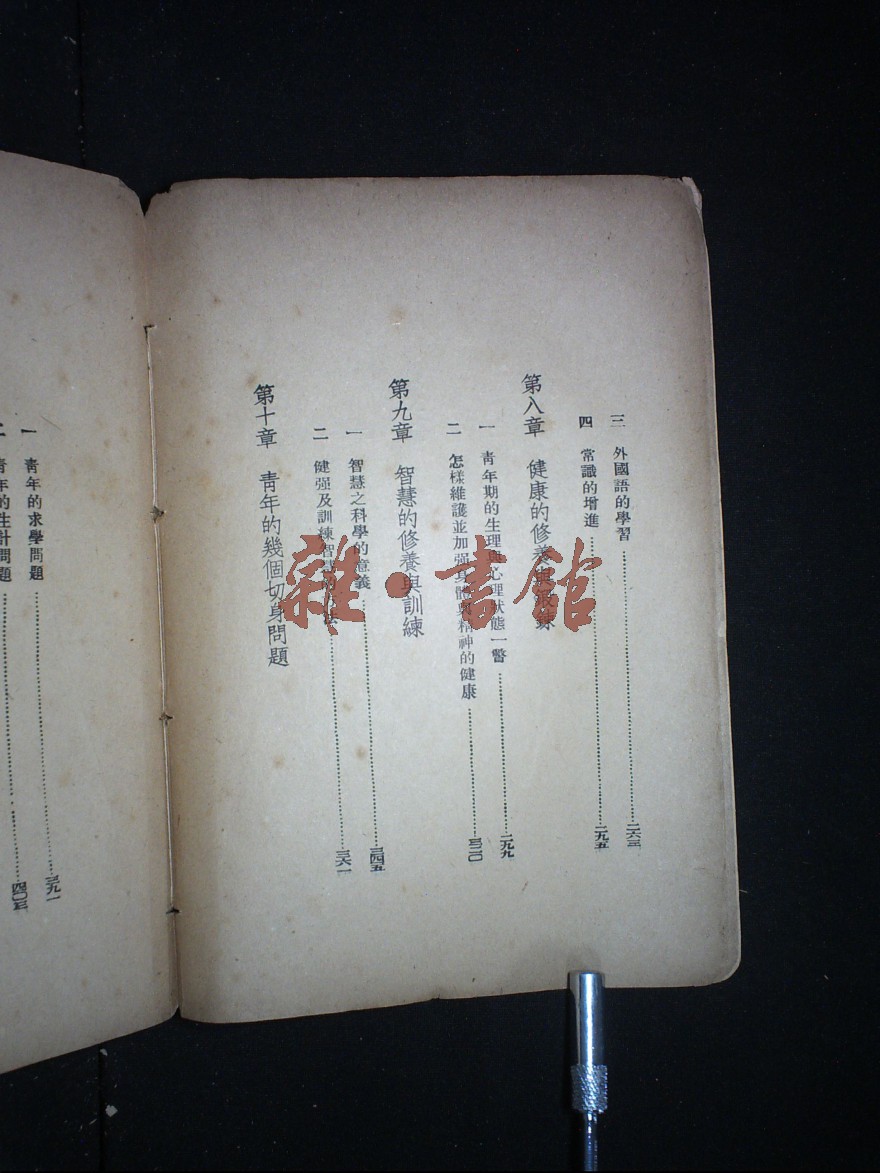 三 外國語的學習……二六三
四 常識的增進……二九五
第八章 健康的修養與鍛鍊
一 靑年期的生理與心理狀態一瞥……二九九
二 怎樣維護並加强身體與精神的健康……三二〇
第九章 智慧的修養與訓練
一 智慧之科學的意義……三四五
二 健强及訓練智慧的方法……三六一
第十章 靑年的幾個切身問題
一 靑年的求學問題……三九一
二 靑年的生計問題……四〇三
雜·書館